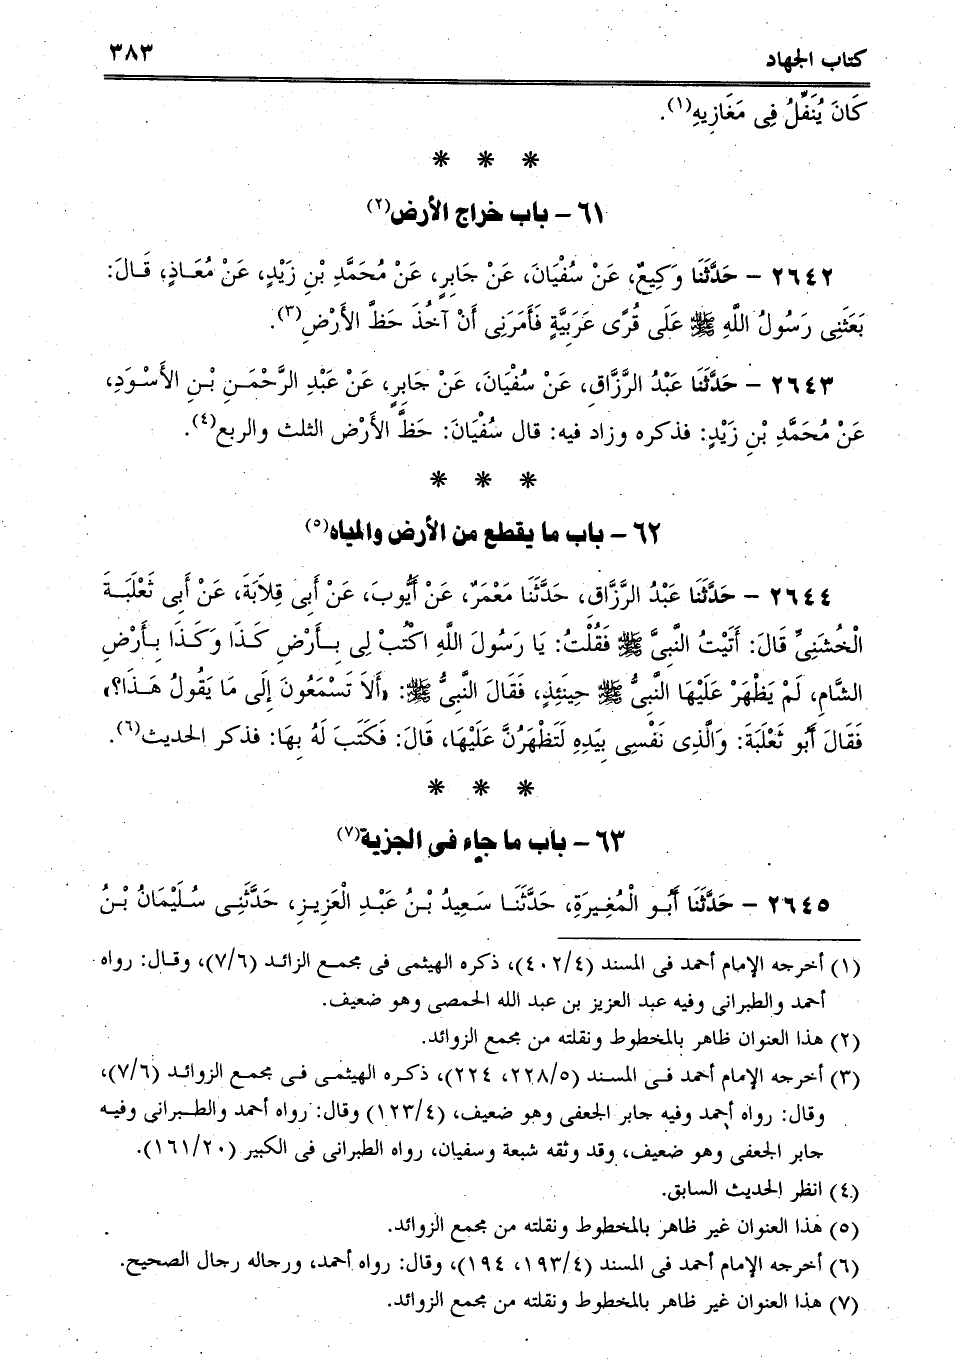 كتاب الجهاد ٣٨٣
كَانَ يُنَفِّلُ فِى مَغَازِيهِ(١).
* * *
٦١ – باب خراج الأرض(٢)
٢٦٤٢ – حَدَّثَنَا وَكِيعٌ، عَنْ سُفْيَانَ، عَنْ جَابِرٍ، عَنْ مُحَمَّدِ بْنِ زَيْدٍ، عَنْ مُعَاذٍ، قَالَ:
بَعَثَنِى رَسُولُ اللَّهِ ﷺ عَلَى قُرًى عَرَبِيَّةٍ فَأَمَرَنِى أَنْ آخُذَ حَظَّ الأَرْضِ(٣).
٢٦٤٣ – حَدَّثَنَا عَبْدُ الرَّزَّاقِ، عَنْ سُفْيَانَ، عَنْ جَابِرٍ، عَنْ عَبْدِ الرَّحْمَنِ بْنِ الأَسْوَدِ،
عَنْ مُحَمَّدِ بْنِ زَيْدٍ: فذكره وزاد فيه: قال سُفْيَانَ: حَظَّ الأَرْضِ الثلث والربع(٤).
* * *
٦٢ – باب ما يقطع من الأرض والمياه(٥)
٢٦٤٤ – حَدَّثَنَا عَبْدُ الرَّزَّاقِ، حَدَّثَنَا مَعْمَرٌ، عَنْ أَيُّوبَ، عَنْ أَبِى قِلاَبَةَ، عَنْ أَبِى ثَعْلَبَةَ
الْخُشَنِىِّ قَالَ: أَتَيْتُ النَّبِىَّ ﷺ فَقُلْتُ: يَا رَسُولَ اللَّهِ اكْتُبْ لِى بِأَرْضِ كَذَا وَكَذَا بِأَرْضِ
الشَّامِ، لَمْ يَظْهَرْ عَلَيْهَا النَّبِىُّ ﷺ حِينَئِذٍ، فَقَالَ النَّبِىُّ ﷺ: «أَلاَ تَسْمَعُونَ إِلَى مَا يَقُولُ هَذَا؟»
فَقَالَ أَبُو ثَعْلَبَةَ: وَالَّذِى نَفْسِى بِيَدِهِ لَتَظْهَرُنَّ عَلَيْهَا، قَالَ: فَكَتَبَ لَهُ بِهَا: فذكر الحديث(٦).
* * *
٦٣ – باب ما جاء فى الجزية(٧)
٢٦٤٥ – حَدَّثَنَا أَبُو الْمُغِيرَةِ، حَدَّثَنَا سَعِيدُ بْنُ عَبْدِ الْعَزِيزِ، حَدَّثَنِى سُلَيْمَانُ بْنُ
(١) أخرجه الإمام أحمد فى المسند (٤٠٢/٤)، ذكره الهيثمى فى مجمع الزائد (٧/٦)، وقال: رواه
أحمد والطبرانى وفيه عبد العزيز بن عبد الله الحمصى وهو ضعيف.
(٢) هذا العنوان ظاهر بالمخطوط ونقلته من مجمع الزوائد.
(٣) أخرجه الإمام أحمد فى المسند (٢٢٨/٥، ٢٢٤)، ذكره الهيثمى فى مجمع الزوائد (٧/٦)،
وقال: رواه أحمد وفيه جابر الجعفى وهو ضعيف، (١٢٣/٤) وقال: رواه أحمد والطبرانى وفيه
جابر الجعفى وهو ضعيف، وقد وثقه شعبة وسفيان، رواه الطبرانى فى الكبير (١٦١/٢٠).
(٤) انظر الحديث السابق.
(٥) هذا العنوان غير ظاهر بالمخطوط ونقلته من مجمع الزوائد.
(٦) أخرجه الإمام أحمد فى المسند (١٩٣/٤، ١٩٤)، وقال: رواه أحمد، ورجاله رجال الصحيح.
(٧) هذا العنوان غير ظاهر بالمخطوط ونقلته من مجمع الزوائد.